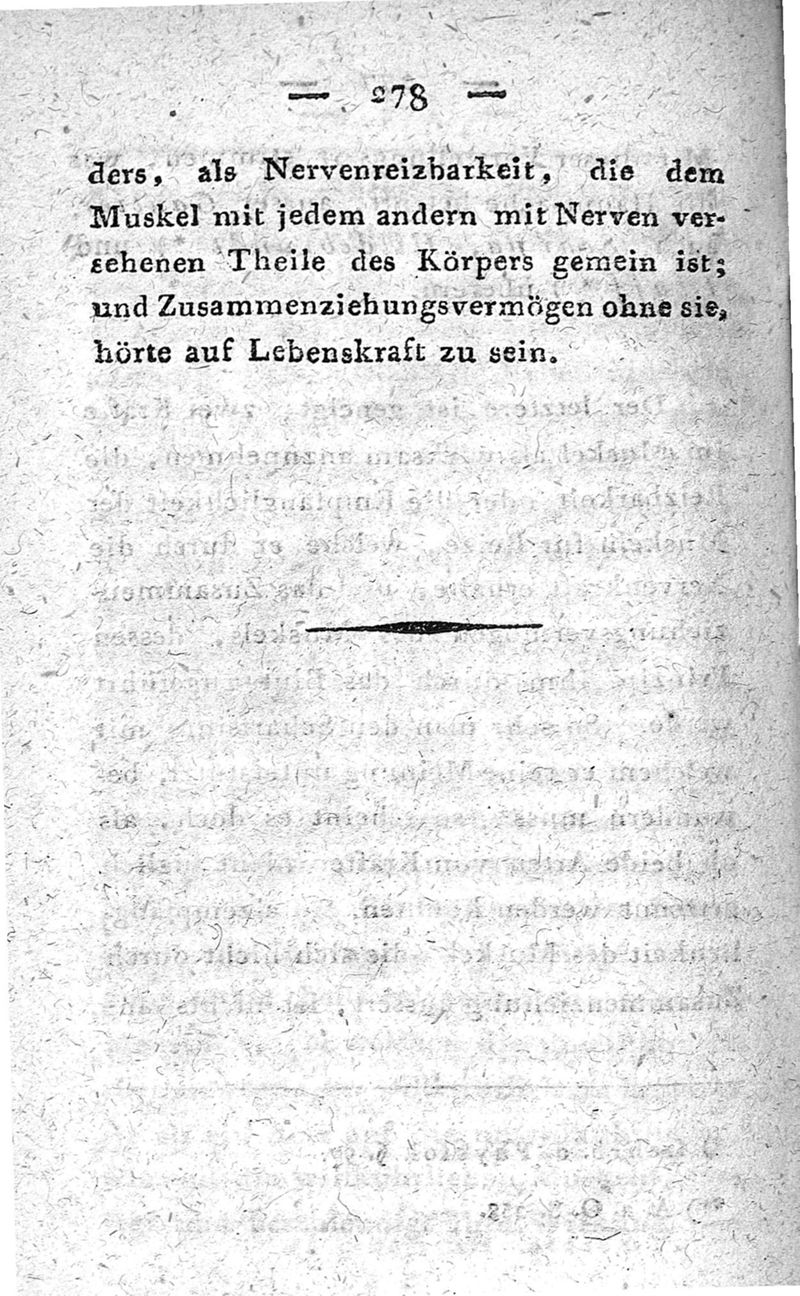 — 278 —
ders, als Nervenreizbarkeit, die dem
Muskel mit jedem andern mit Nerven ver-
sehenen Theile des Körpers gemein ist;
und Zusammenziehungsvermögen ohne sie,
hörte auf Lebenskraft zu sein.